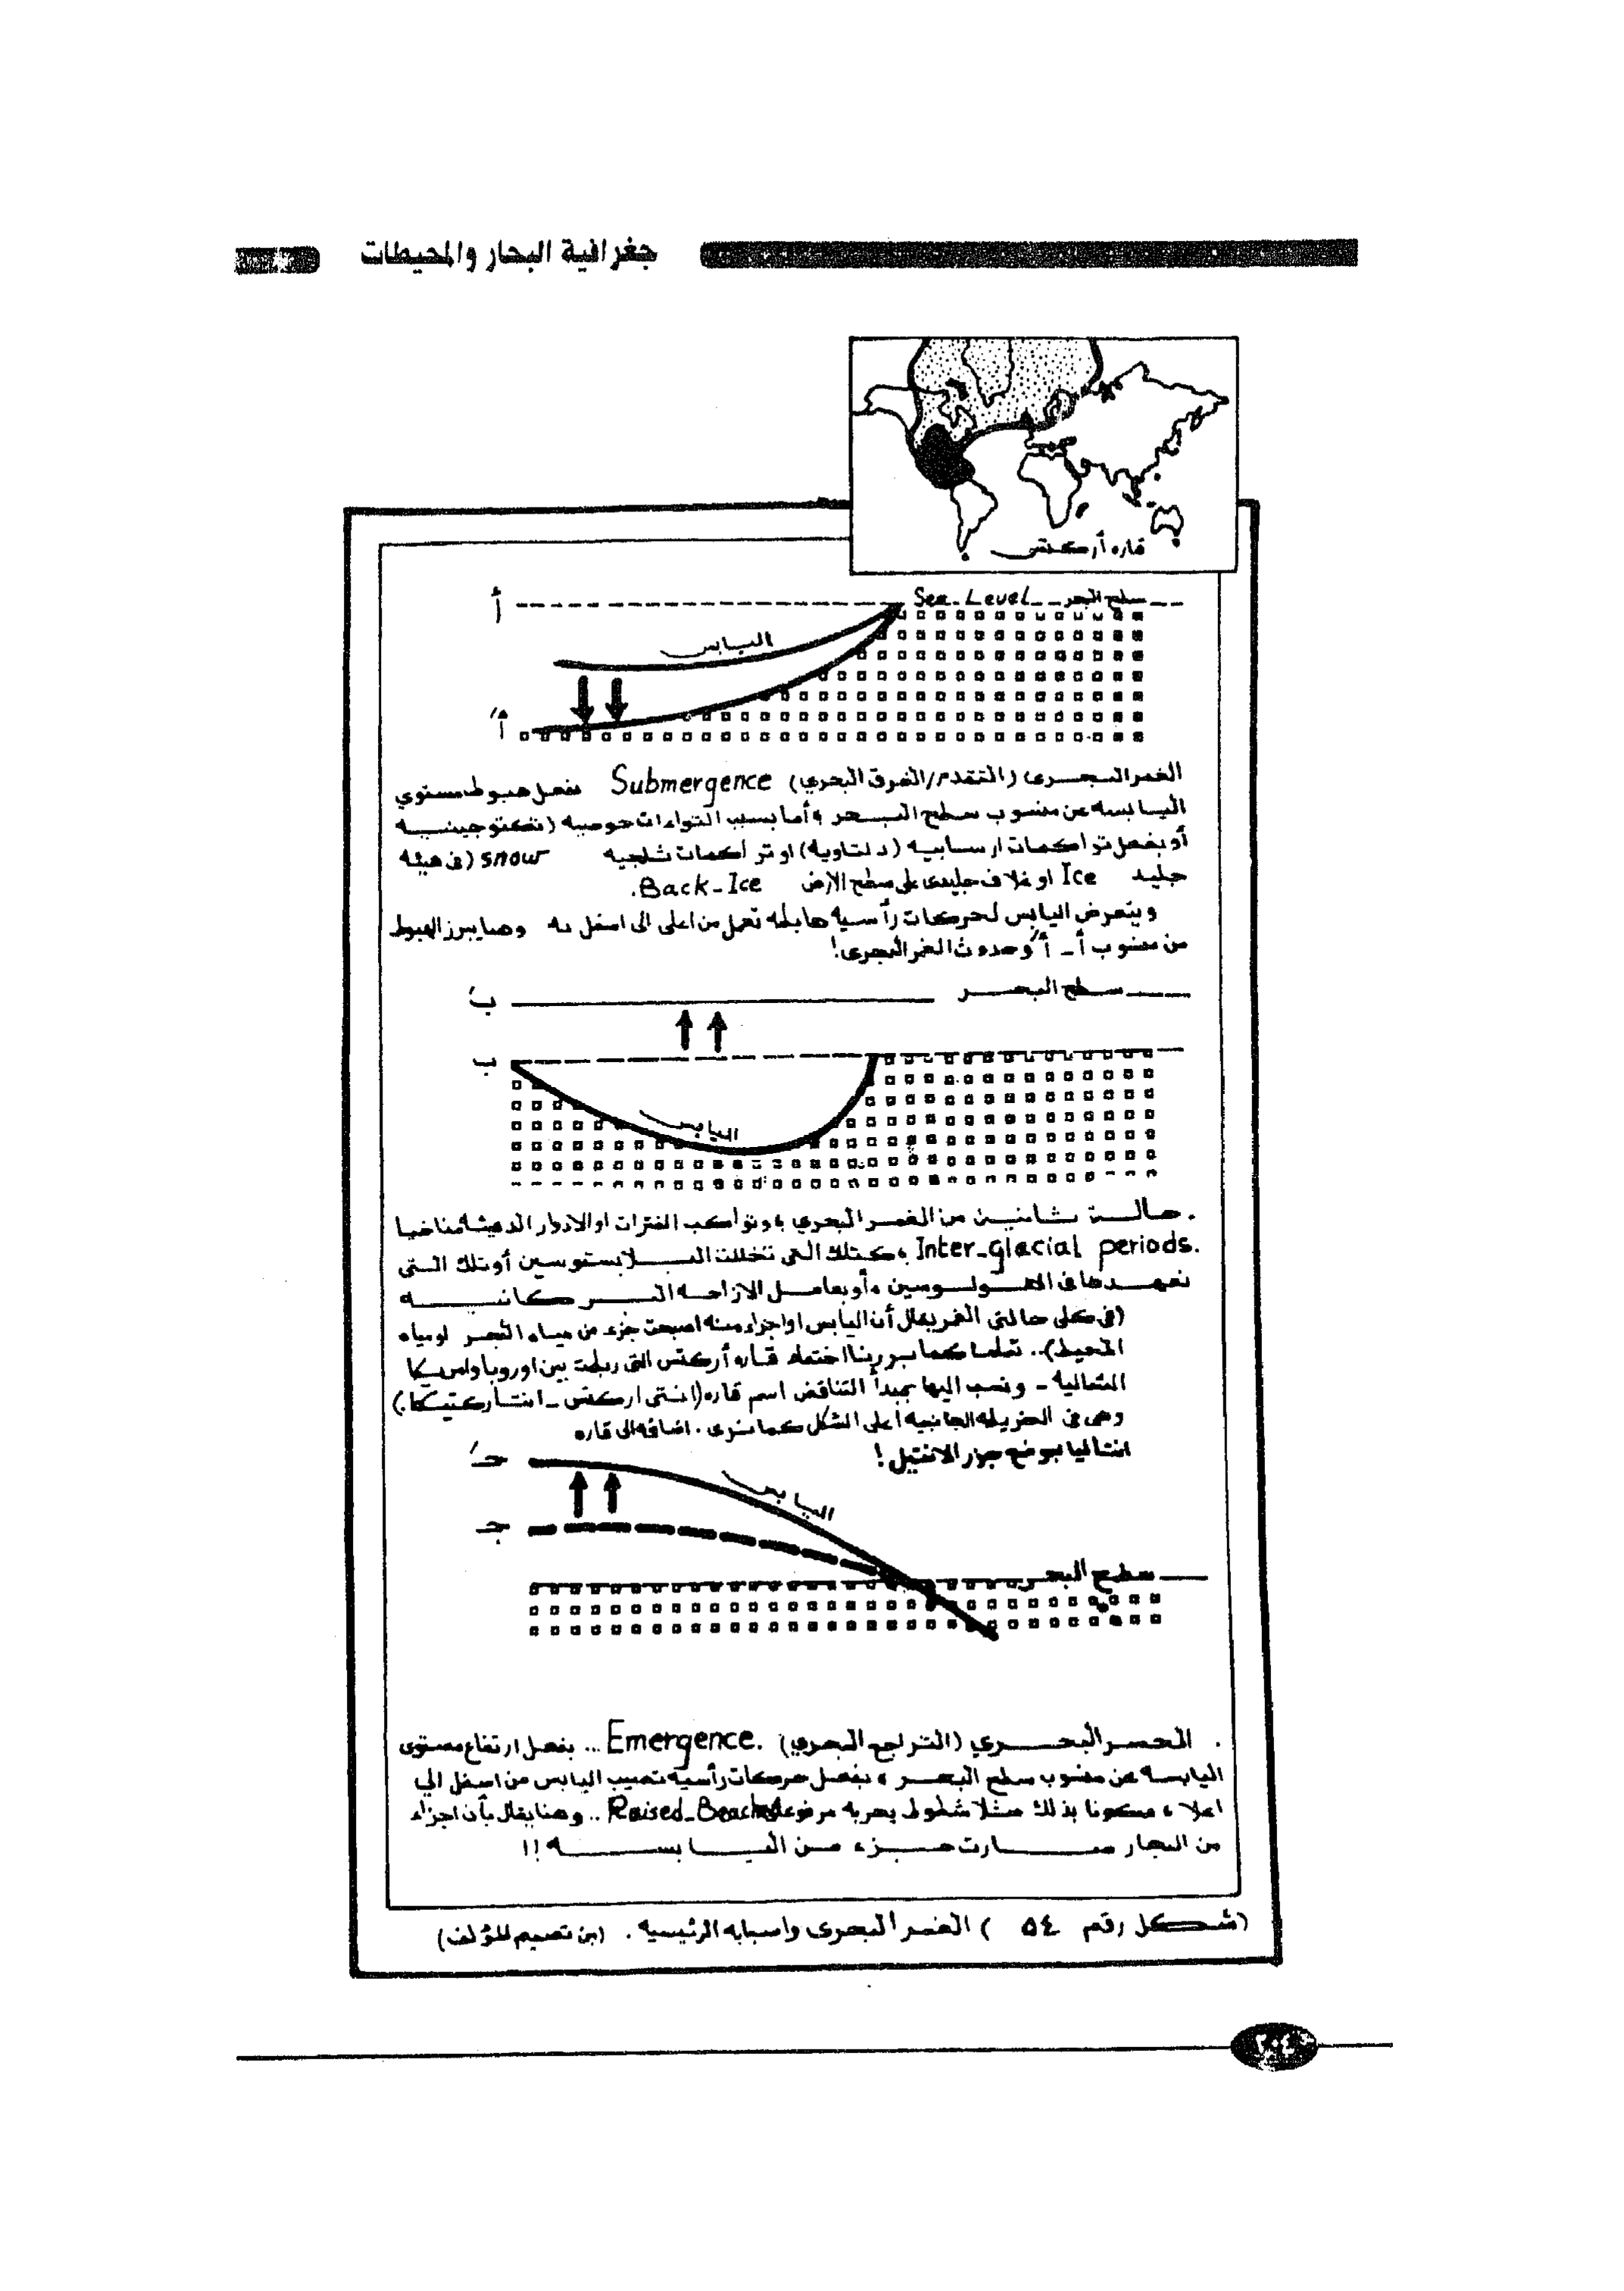 جغرافية البحار والمحيطات
قاره أركتس
أ
Sea-Level سطح البحر
اليابس
أَ
الغمر البحرى (التقدم/الغرق البحري) Submergence بفعل هبوط مستوي
اليابسه عن منسوب سطح البحر، أما بسبب التواءات حوضيه (تكتوجينيه
أو بفعل تراكمات ارسابيه (دلتاويه) او تراكمات ثلجيه snow (فى هيئه
جليد Ice او غلاف جليدى على سطح الارض Back-Ice.
ويتعرض اليابس لحركات رأسيه هابطه تعمل من اعلى الى اسفل به وهنا يبرز الهبوط
من منسوب أ - أَ وحدوث الغمر البحرى!
بَ سطح البحر
ب
اليابس
. حالة ثانية من الغمر البحري، وتواكب الفترات او الادوار الدفيئه مناخيا
Inter-glacial periods. ، كتلك التى تخللت البلايستوسين أو تلك التى
نعهدها فى الهولوسين، أو بعامل الازاحه البركانيه
(فى كلى حالتى الغمر يقال أن اليابس او اجزاء منه اصبحت جزء من مياه البحر او مياه
المحيط).. تماما كما يبرر بنا اختفاء قاره أركتس التى ربطت بين اوروبا وامريكا
الشماليه - ونسب اليها بمبدأ التناقض اسم قاره (انتى اركتس - انتاركتيكا.)
وهى فى الخريطه الجانبيه اعلى الشكل كما نرى. اضافه الى قاره
انتاليا بموضع جزر الانتيل!
جـَ
اليابس
جـ
سطح البحر
. الحسر البحري (التراجع البحري) Emergence. ... بفعل ارتفاع مستوى
اليابسه عن منسوب سطح البحر، بفعل حركات رأسيه تصيب اليابس من اسفل الي
اعلا، مكونا بذلك مثلا شطوط بحريه مرفوعه Raised-Beaches .. وهنا يقال بأن اجزاء
من البحار صارت جزء من اليابسه !!
(شكل رقم ٥٤ ) الغمر البحرى واسبابه الرئيسيه. (من تصميم المؤلف)